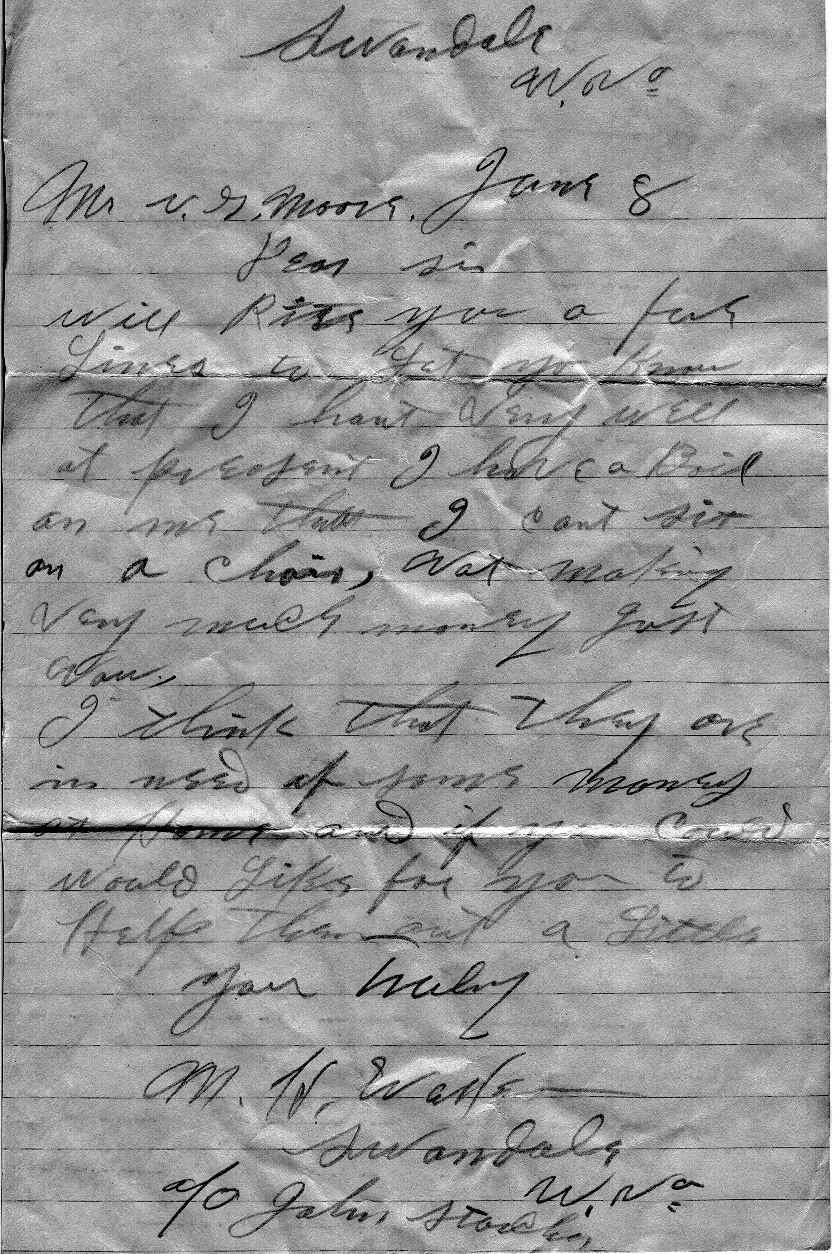 Swandale
W. Va
Mr v. G. Moore. June 8
Dear sir
will Rite you a fue
Lines to Let yo Know
that I hant Very well
at present I have a Boil
on me that I cant sit
on a chair, Not making
Very much money Just
Now.
I think that they are
in need of some money
at Home and if you could
would Like for you to
Help them out a Little
Your truly
M. H.
Swandale
W. Va
c/o John